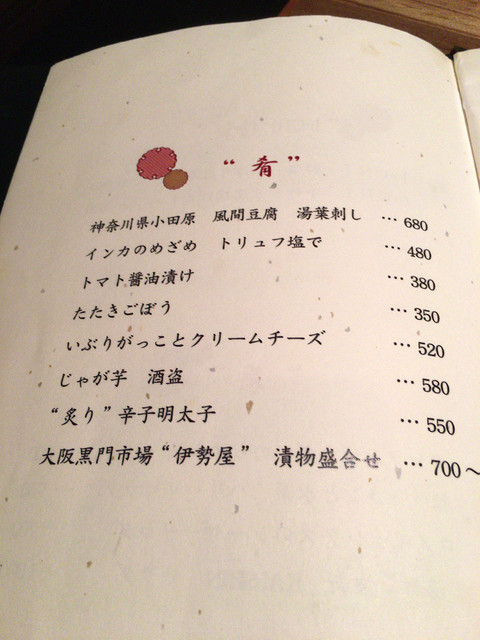 “肴”
神奈川県小田原　風間豆腐　湯葉刺し　…　680
インカのめざめ　トリュフ塩で　…　480
トマト醤油漬け　…　380
たたきごぼう　…　350
いぶりがっことクリームチーズ　…　520
じゃが芋　酒盗　…　580
“炙り”辛子明太子　…　550
大阪黒門市場“伊勢屋”　漬物盛合せ　…　700～